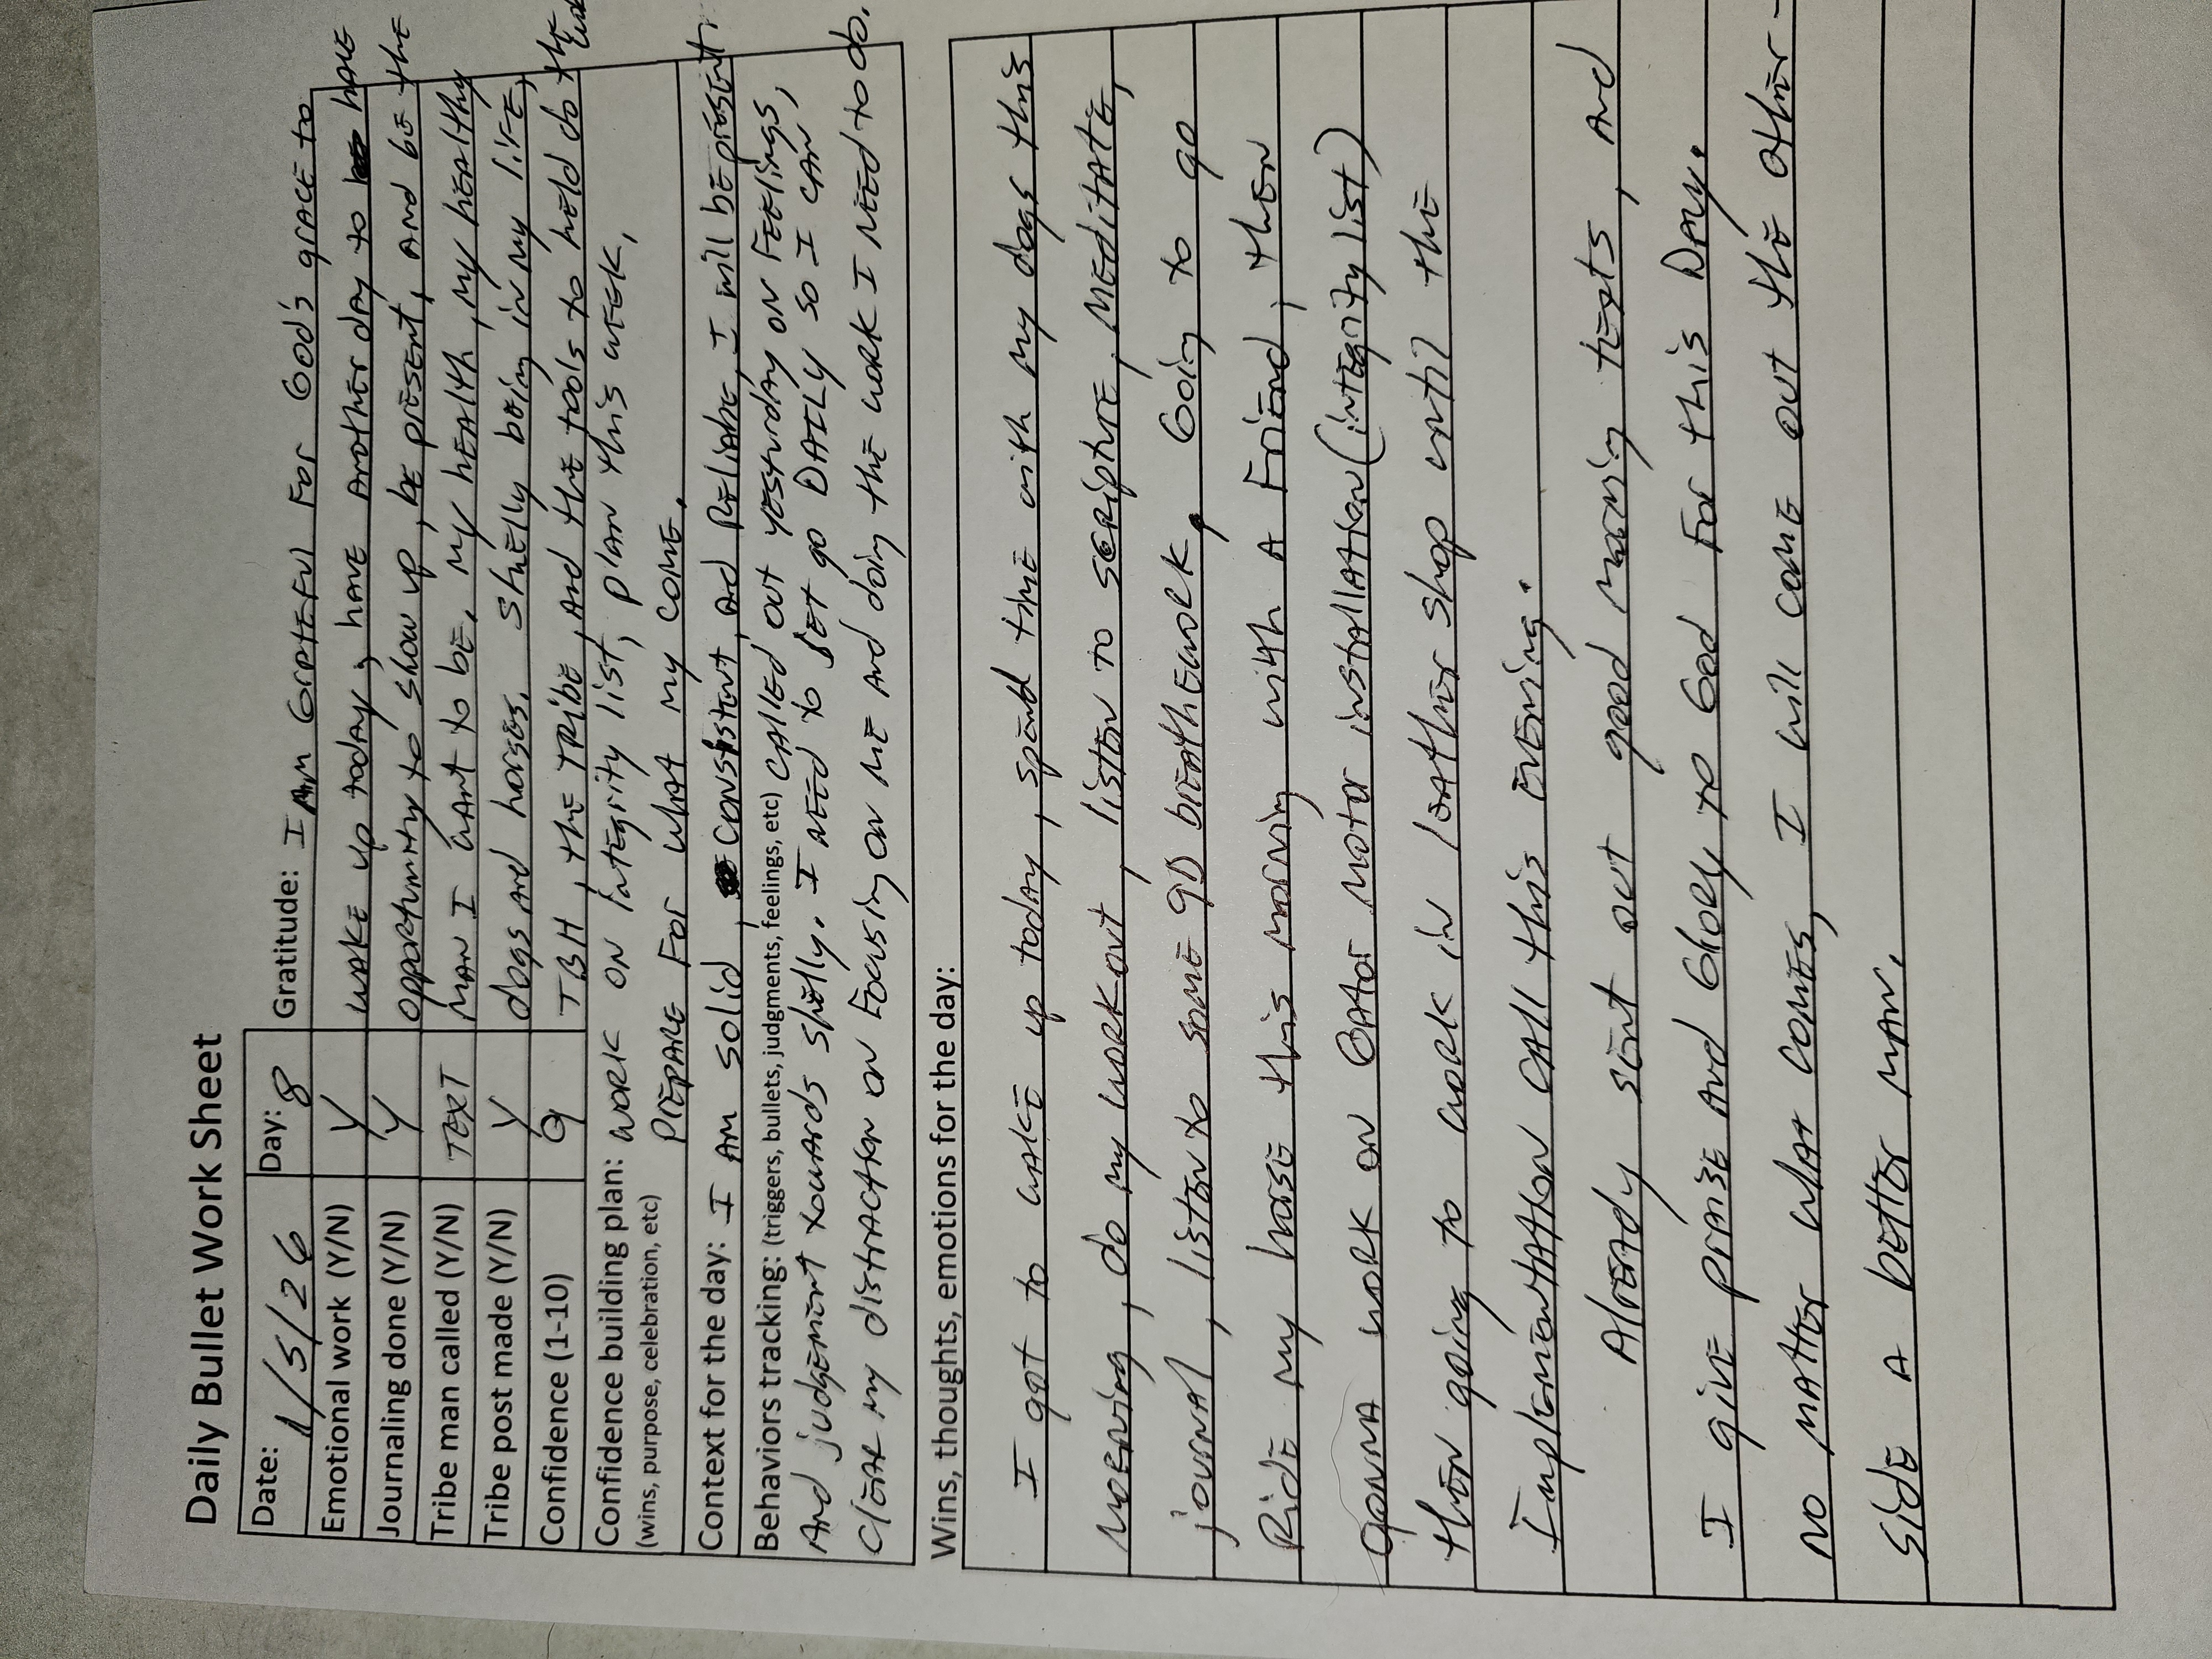 Daily Bullet Work Sheet
Date: 1/5/26 Day: 8 Gratitude: I Am GrATEFUL For GOD'S grACE to
Emotional work (Y/N) Y WAKE up today, have Another day to have
Journaling done (Y/N) Y opportunity to show up, be present, And be the
Tribe man called (Y/N) TEXT MAN I want to be. My health, my healthy
Tribe post made (Y/N) Y dogs And horses. Shelly being in my life,
Confidence (1-10) 9 TBH, the TRIBE, And the tools to held do the
Confidence building plan: WORK ON Integrity list, plan this week,
(wins, purpose, celebration, etc) PrEPARE For what my COME.
Context for the day: I AM SOLID, CONSISTENT, And Reliable, I will be present.
Behaviors tracking: (triggers, bullets, judgments, feelings, etc) CALLED OUT YESTURDAY ON FEELINGS,
And judgEMENT towards Shelly. I NEED to LET go DAILY SO I CAN
Clear my distraction on Focusing on ME And doing the work I NEED to do.
Wins, thoughts, emotions for the day:
I got to wake up today, spend time with my dogs this
morning, do my workout, listen to scripture, Meditate,
journal, listen to some 9D breathework. Going to go
Ride my horse this morning with A Friend, then
gonna work on Gator motor installation (integrity list)
then going to work in leather shop until the
Implementation CALL this Evening.
Already sent out good morning texts, And
I give praise And Glory to God For this DAy.
NO MATTER What comes, I will come out the other-
side A better man.